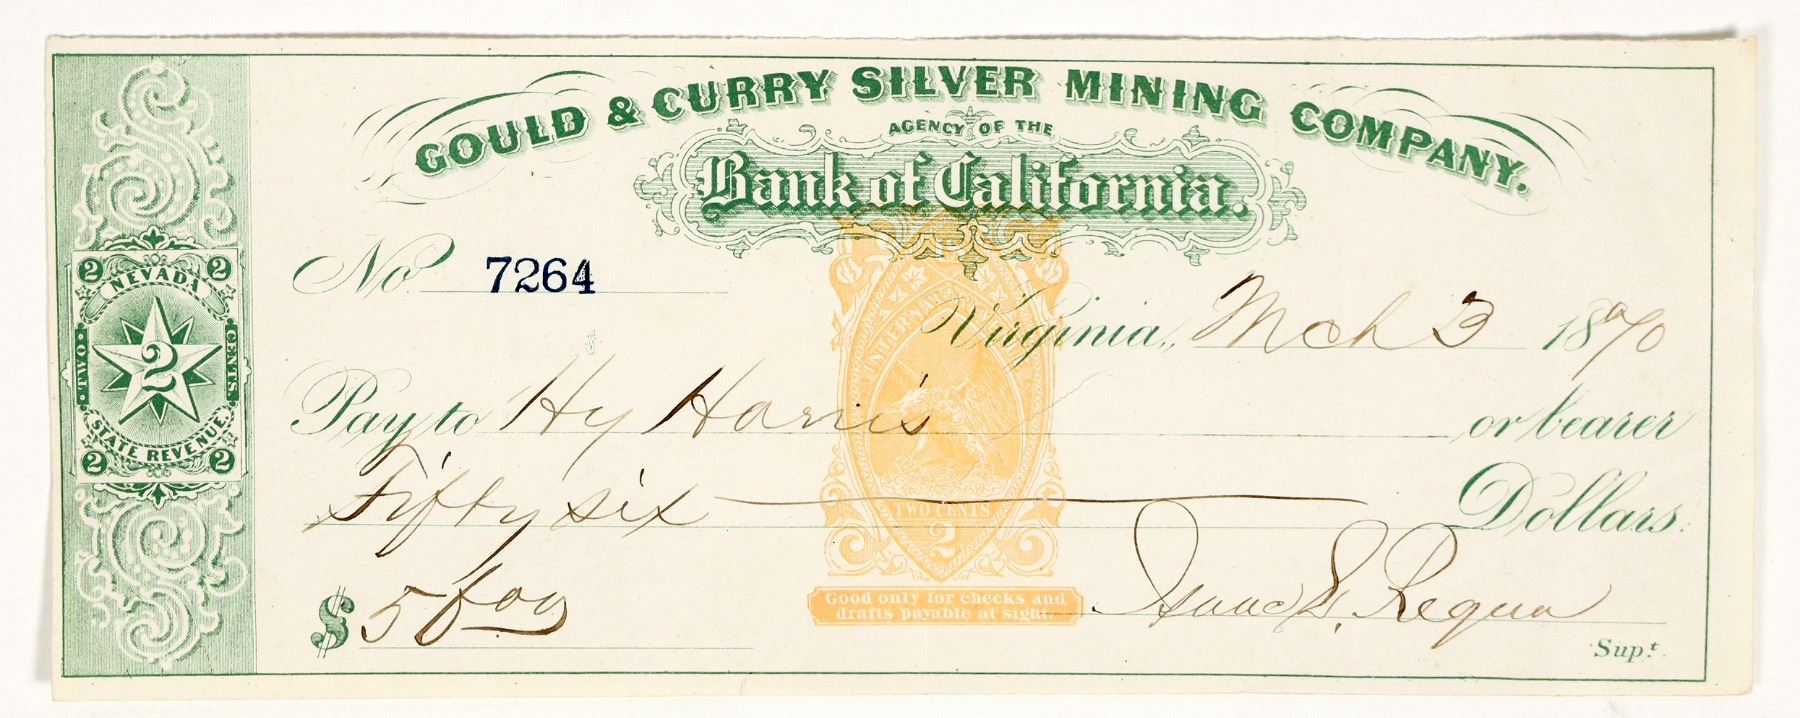 GOULD & CURRY SILVER MINING COMPANY.
AGENCY OF THE
Bank of California.
No 7264
Virginia, Mch 3 1870
Pay to Hy Harris or bearer
Fifty six Dollars.
$ 56 00
Isaac L. Requa
Supt.
2 NEVADA 2
TWO 2 CENTS.
STATE REVENUE.
2 2
INTERNAL
TWO CENTS
2
Good only for checks and
drafts payable at sight